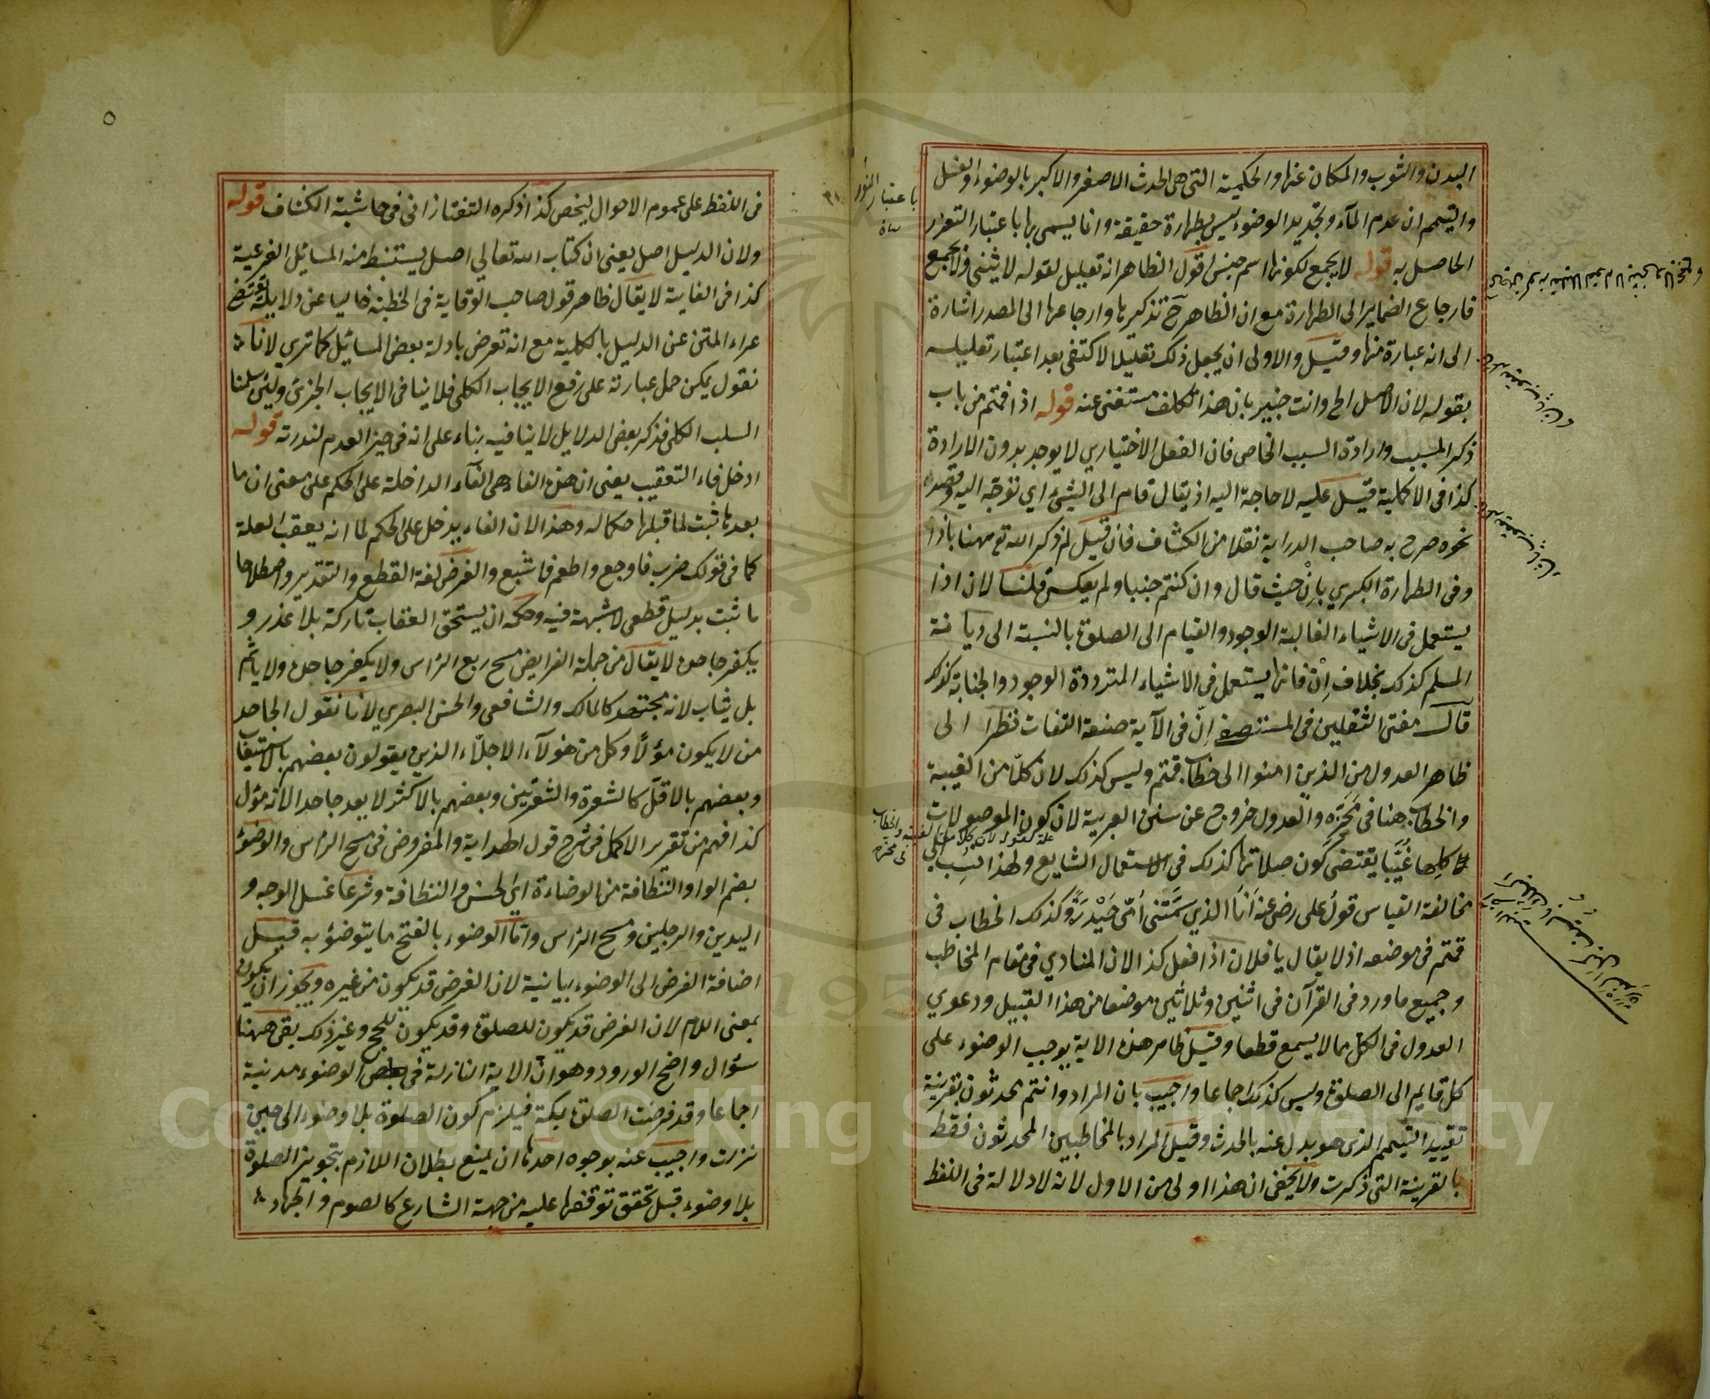 البدن والثوب والمكان عنها والحكمية التى هى الحدث الاصغر والاكبر بالوضوء والغسل
والتيمم ان عدم المآء وتجديد الوضوء ليس بطهارة حقيقة وانما يسمى بها باعتبار التعرر
الحاصل به قوله لا يجمع لكونها اسم جنس اقول الظاهر انه تعليل لقوله لا يثنى ولا يجمع
فارجاع الضماير الى الطهارة مع ان الظاهر ح تذكيرها وارجاعها الى المصدر اشارة
الى انه عبارة منها وقيل والاولى ان يجعل ذلك تعليلا لاكتفى بعد اعتبار تعليله
بقوله لان الاصل الخ وانت خبير بان هذا تكلف مستغنى عنه قوله اذا قمتم من باب
ذكر المسبب وارادة السبب الخاص فان الفعل الاختياري لا يوجد بدون الارادة
كذا فى الاكملية قيل عليه لا حاجة اليه اذ يقال قام الى الشيئ اي توجه اليه وقصد
نحوه صرح به صاحب الدراية نقلا من الكشاف فان قيل لم ذكر الله تع ههنا باذا
وفى الطهارة الكبري بان حيث قال وان كنتم جنبا ولم يعكس قلنا لان اذا
يستعمل فى الاشياء الغالبة الوجود والقيام الى الصلوة بالنسبة الى ديانة
المسلم كذلك بخلاف ان فانها يستعمل فى الاشياء المترددة الوجود والجنابة كذلك
قال مفتى الثقلين فى المستصفى ان فى الآية صنعة التفات نظرا الى
ظاهر العدول من الذين امنوا الى خطاب قمتم وليس كذلك لان كلا من الغيبة
والخطاب هنا فى محزه والعدول خروج عن سنن العربية لان كون الموصولات
كلها غيبا يقتضى كون صلاتها كذلك فى الاستعمال الشايع ولهذا نسب الى
مخالفة القياس قول على رض عنه انا الذي سمتنى امى حيدرة وكذلك الخطاب فى
قمتم فى موضعه اذ لا يقال يا فلان اذا فعل كذا لان المنادي فى مقام المخاطب
وجميع ما ورد فى القرآن فى اثنين وثلاثين موضعا من هذا القبيل ودعوي
العدول فى الكل مما لا يسمع قطعا وقيل ظاهر هذه الاية يوجب الوضوء على
كل قايم الى الصلوة وليس كذلك اجماعا واجيب بان المراد وانتم محدثون بقرينة
تقييد التيمم الذى هو بدل عنه بالحدث وقيل المراد بالمخاطبين المحدثون فقط
بالقرينة التى ذكرت ولا يخفى ان هذا اولى من الاول لانه لا دلالة فى اللفظ
باعتبار
الغيبة والخطاب
٥
فى اللفظ على عموم الاحوال ليخص كذا ذكره التفتازانى فى حاشية الكشاف قوله
ولان الدليل اصل يعنى ان كتاب الله تعالى اصل يستنبط منه المسائل الفرعية
كذا فى الغاية لا يقال ظاهر قول صاحب الوقاية فى الخطبة خاليا عن دلايله يقتضى
عراء المتن عن الدليل بالكلية مع انه تعرض بادلة بعض المسائل كما تري لانا
نقول يمكن حمل عبارته على رفع الايجاب الكلى فلا ينافى الايجاب الجزئ ولئن سلمنا
السلب الكلى فذكر بعض الدلايل لا ينافيه بناء على انه فى حيز العدم لندرته قوله
ادخل فاء التعقيب يعنى ان هذه الفاء هى الفآء الداخلة على الحكم على معنى ان ما
بعدها ثبت لما قبلها حكما له وهذا لان الفاء يدخل على الحكم لما انه يعقب العلة
كما فى قولك ضرب فاوجع واطعم فاشبع والفرض لغة القطع والتقدير واصطلاحا
ما ثبت بدليل قطعى لا شبهة فيه وحكمه ان يستحق العقاب تاركه بلا عذر و
يكفر جاحده لا يقال من جملة الفرايض مسح ربع الراس ولا يكفر جاحده ولا ياثم
بل يثاب لانه مجتهد كالمالك والشافعى والحسن البصري لانا نقول الجاحد
من لا يكون مؤلا وكل من هولآء الاجلاء الذين يقولون بعضهم بالاستيعاب
وبعضهم بالاقل كالشعرة والشعرتين وبعضهم بالاكثر لا يعد جاحدا لانه مؤل
كذا فهم من تقرير الاكمل فى شرح قول الهداية والمفروض فى مسح الراس والوضؤ
بضم الواو النظافة من الوضاءة اي الحسن والنظافة وشرعا غسل الوجه و
اليدين والرجلين ومسح الراس واما الوضوء بالفتح ما يتوضؤ به قيل
اضافة الفرض الى الوضوء بيانية لان الفرض قد يكون من غيره ويجوز ان يكون
بمعنى اللام لان الفرض قد يكون للصلوة وقد يكون للحج وغير ذلك بقى ههنا
سؤال واضح الورود وهو ان الاية النازلة فى الوضوء مدنية
اجماعا وقد فرضت الصلوة بمكة فيلزم كون الصلوة بلا وضوء الى حين
نزلت واجيب عنه بوجوه احدها ان يمنع بطلان اللازم بتجويز الصلوة
بلا وضوء قبل تحقق توقفها عليه من جهة الشارع كالصوم والجهاد
Copyright © King Saud University